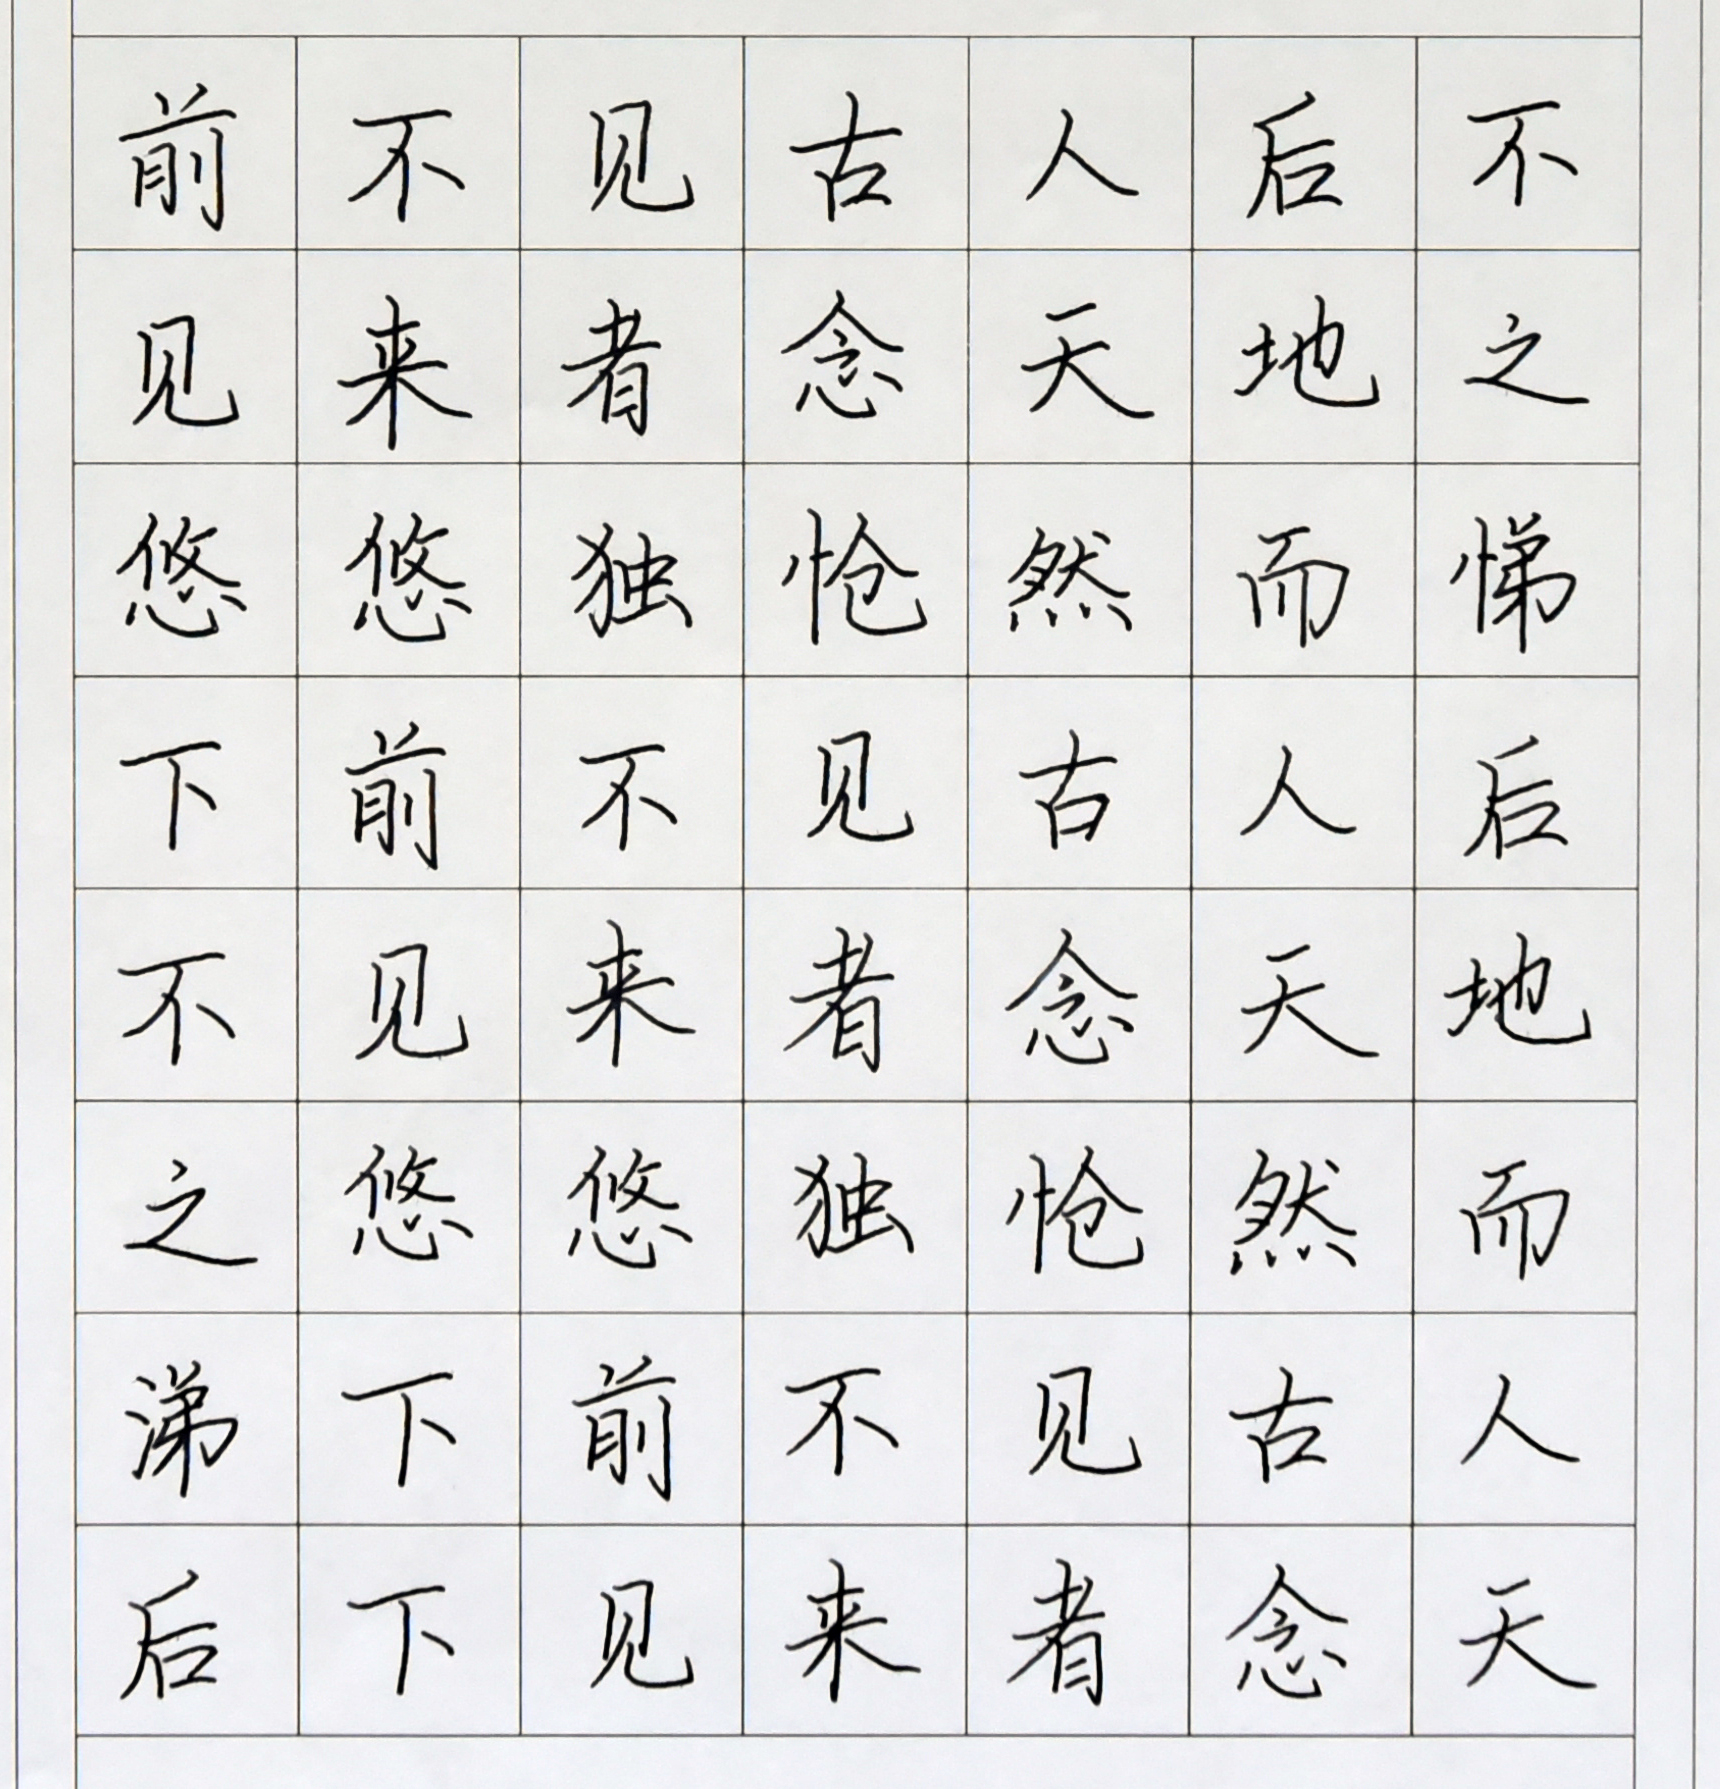 前不见古人后不
见来者念天地之
悠悠独怆然而悌
下前不见古人后
不见来者念天地
之悠悠独怆然而
涕下前不见古人
后下见来者念天